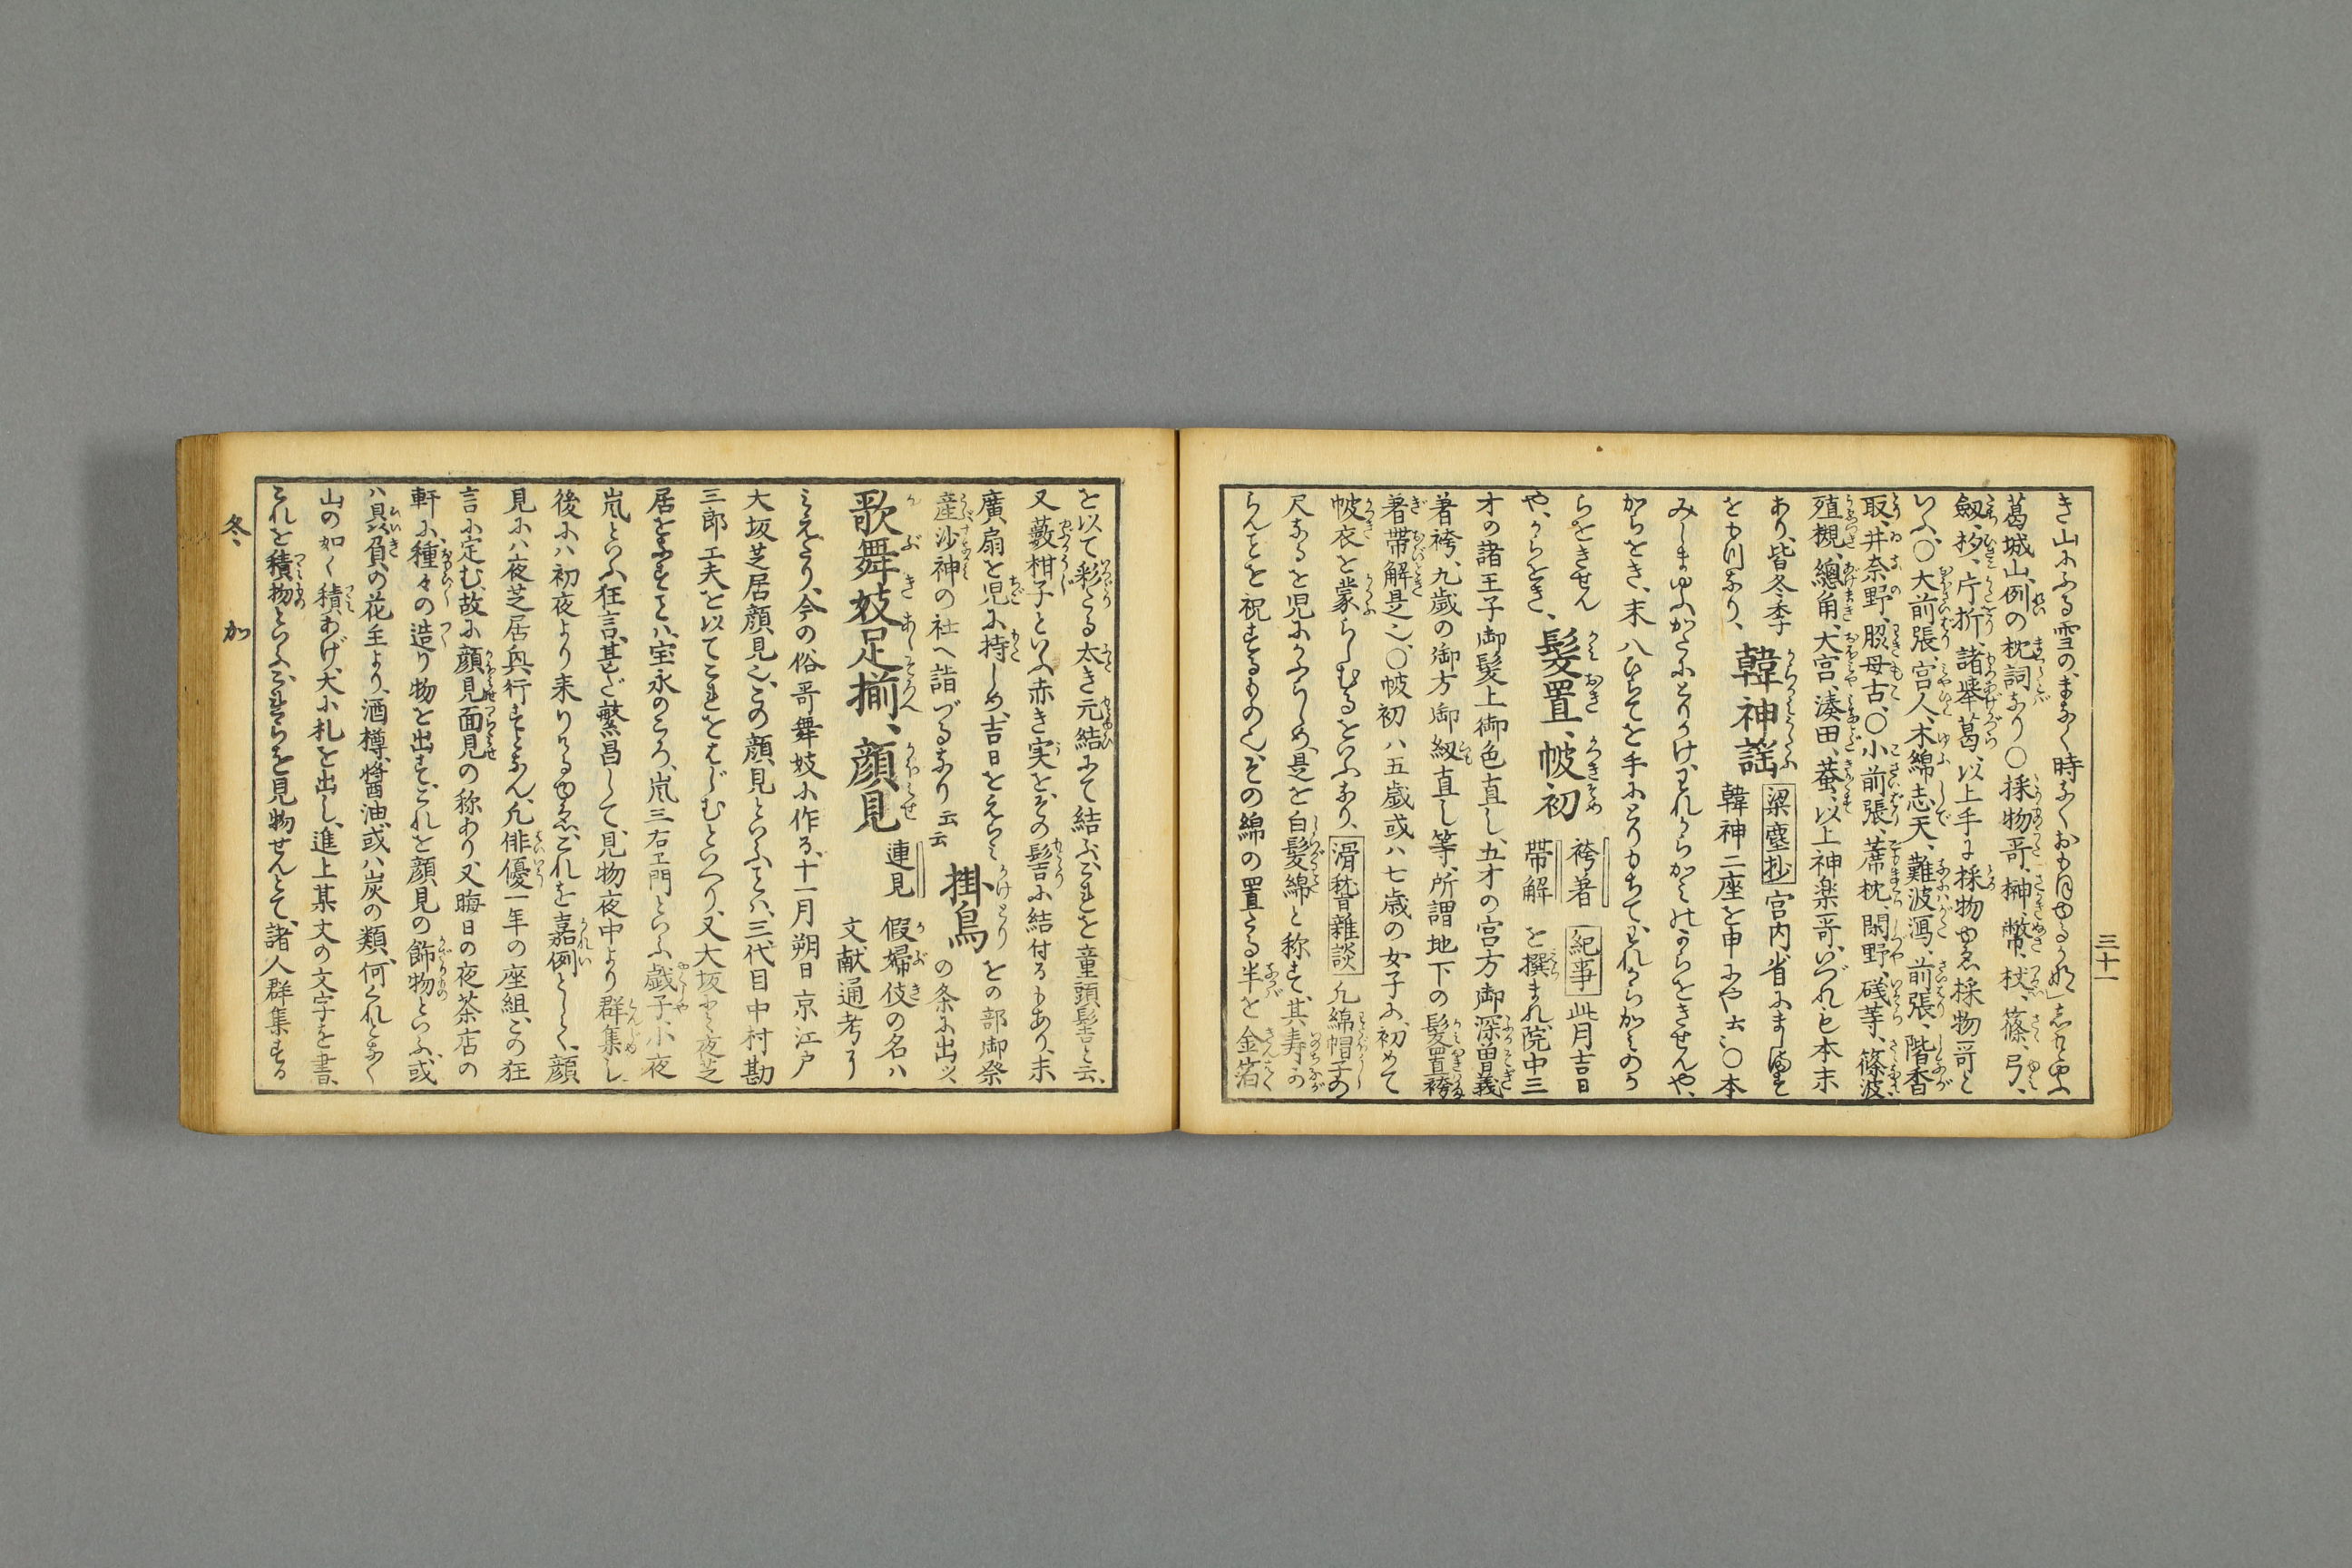 三十一
き山にふる雪のまなく時なくおもほゆるかな」志もとゆふ
葛城山、例の枕詞なり○採物哥、榊、幣、杖、篠、弓、
劔、杪、片折、諸挙葛、以上手に採物ゆゑ採物哥と
いふ、○大前張、宮人、木綿志天、難波潟、前張、階香
取、井奈野、脇母古、○小前張、薦枕、閑野、磯等、篠波
殖槻、總角、大宮、湊田、蛬、以上神楽哥、いづれも本末
あり、皆冬季
をもつなり、
韓神謡
梁塵抄
宮内省にまします
韓神二座を申にや云〻○本
みしまゆふかたにとりかけ、われからかみのからをきせんや、
からをき、末八ひらてを手にとりもちて、われからかみのか
らをきせん
や、からをき、
髪置、帔初
袴著
帯解
紀事
此月吉日
を撰まれ、院中三
才の諸王子御髪上御色直し、五才の宮方御深曽義
著袴、九歳の御方御紐直し等、所謂地下の髪置袴
著帯解是也、○帔初ハ五歳或ハ七歳の女子に、初めて
帔衣を蒙らしむるをいふなり、
滑稽雑談
凡綿帽子の
尺なるを児にかふらしめ、是を白髪綿と称す、其寿なが
らんことを祝するもの也、その綿の置たる半を金箔
を以て彩たる太き元結にて結ふ、これを童頭髻と云、
又藪柑子といふ赤き実を、その髻に結付るもあり、末
廣扇を児に持しめ、吉日をえらみ
産沙神の社へ詣づるなり云云
掛鳥
との部御祭
の条に出ツ、
歌舞妓足揃、顔見
連見
假婦伎の名ハ
文献通考ヨリ
みえたり、今の俗哥舞妓に作る、十一月朔日京江戸
大坂芝居顔見也、この顔見といふことハ、三代目中村勘
三郎工夫を以てこれをはじむといへり、又大坂にて夜芝
居をなすことハ、宝永のころ、嵐三右エ門といふ戯子、小夜
嵐といふ狂言、甚だ繁昌して、見物夜中より群集し、
後にハ初夜より来りけるゆゑ、これを嘉例として、顔
見にハ夜芝居興行すとなん、凡俳優一年の座組、この狂
言に定む、故に顔見面見の称あり、又晦日の夜茶店の
軒に、種々の造り物を出す、これを顔見の飾物といふ、或
ハ贔負の花主より、酒樽、醤油、或ハ炭の類、何くれとなく
山の如く積あげ、大小札を出し、進上某丈の文字を書、
これを積物といふ、これらを見物せんとて、諸人群集する
冬、加